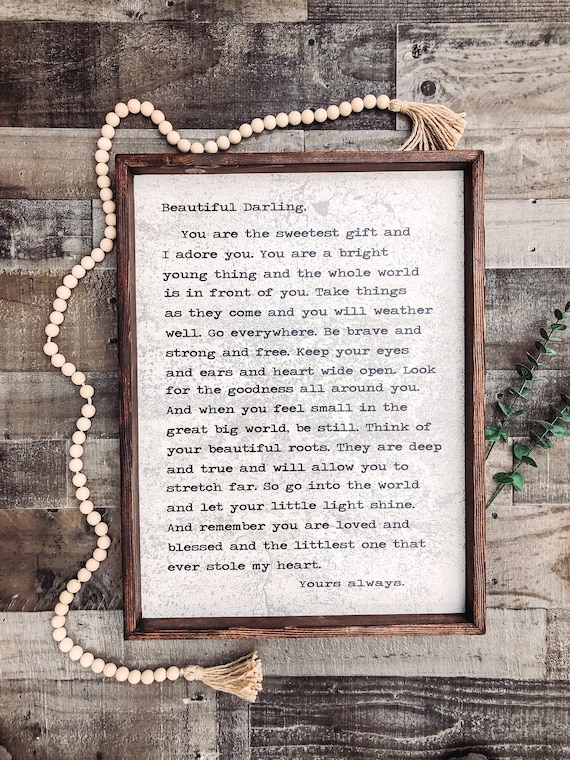 Beautiful Darling,
You are the sweetest gift and
I adore you. You are a bright
young thing and the whole world
is in front of you. Take things
as they come and you will weather
well. Go everywhere. Be brave and
strong and free. Keep your eyes
and ears and heart wide open. Look
for the goodness all around you.
And when you feel small in the
great big world, be still. Think of
your beautiful roots. They are deep
and true and will allow you to
stretch far. So go into the world
and let your little light shine.
And remember you are loved and
blessed and the littlest one that
ever stole my heart.
Yours always.